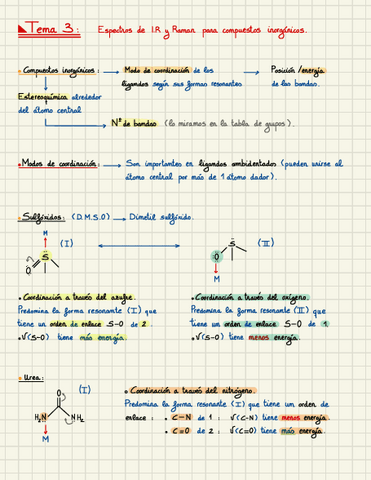 Tema 3: Espectros de I.R y Raman para compuestos inorgánicos.
Compuestos inorgánicos: Modo de coordinación de los Posición/energía
ligandos según sus formas resonantes de las bandas.
Estereoquímica alrededor
del átomo central
Nº de bandas (lo miramos en la tabla de grupos).
Modos de coordinación: Son importantes en ligandos ambidentados (pueden unirse al
átomo central por más de 1 átomo dador).
Sulfóxidos: (D.M.S.O) Dimetil sulfóxido.
M (I) (II)
S S
O O
M
Coordinación a través del azufre. Coordinación a través del oxígeno.
Predomina la forma resonante (I) que Predomina la forma resonante (II) que
tiene un orden de enlace S-O de 2. tiene un orden de enlace S-O de 1.
√(S-O) tiene más energía. √(S-O) tiene menos energía.
Urea:
(I) Coordinación a través del nitrógeno.
O Predomina la forma resonante (I) que tiene un orden de
H₂N NH₂ enlace: C-N de 1: √(C-N) tiene menos energía.
M C=O de 2: √(C=O) tiene más energía.